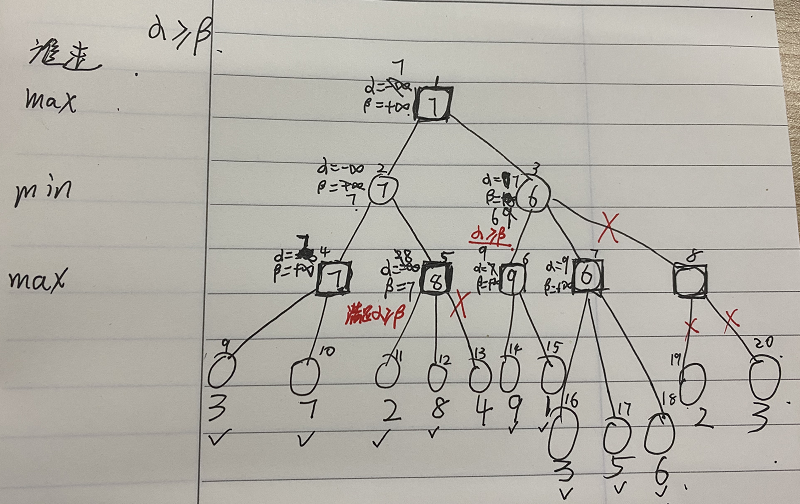 α≥β
谁走
max
min
max
1
7
α=-∞
β=+∞
7
2
α=-∞
β=+∞
7
7
3
α=7
β=
6 9
6
α≥β
4
7
β=+∞
7
5
8
β=7
8
满足α≥β
X
6
9
α=7
β=+∞
9
7
α=9
β=+∞
6
X
8
X
X
9
10
11
12
13
14
15
16
17
18
19
20
3
7
2
8
4
9
1
3
5
6
2
3